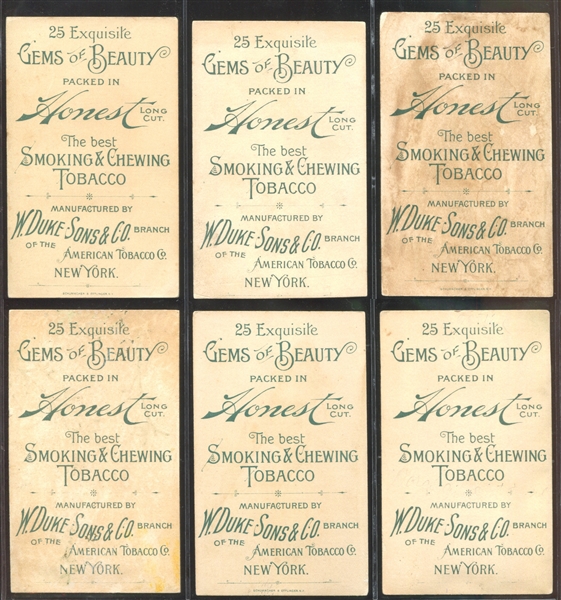 25 Exquisite
GEMS OF BEAUTY
PACKED IN
Honest LONG CUT.
The best
SMOKING & CHEWING
TOBACCO
MANUFACTURED BY
W. DUKE SONS & CO. BRANCH
OF THE AMERICAN TOBACCO Co.
NEW YORK.
25 Exquisite
GEMS OF BEAUTY
PACKED IN
Honest LONG CUT.
The best
SMOKING & CHEWING
TOBACCO
MANUFACTURED BY
W. DUKE SONS & CO. BRANCH
OF THE AMERICAN TOBACCO Co.
NEW YORK.
25 Exquisite
GEMS OF BEAUTY
PACKED IN
Honest LONG CUT.
The best
SMOKING & CHEWING
TOBACCO
MANUFACTURED BY
W. DUKE SONS & CO. BRANCH
OF THE AMERICAN TOBACCO Co.
NEW YORK.
25 Exquisite
GEMS OF BEAUTY
PACKED IN
Honest LONG CUT.
The best
SMOKING & CHEWING
TOBACCO
MANUFACTURED BY
W. DUKE SONS & CO. BRANCH
OF THE AMERICAN TOBACCO Co.
NEW YORK.
25 Exquisite
GEMS OF BEAUTY
PACKED IN
Honest LONG CUT.
The best
SMOKING & CHEWING
TOBACCO
MANUFACTURED BY
W. DUKE SONS & CO. BRANCH
OF THE AMERICAN TOBACCO Co.
NEW YORK.
25 Exquisite
GEMS OF BEAUTY
PACKED IN
Honest LONG CUT.
The best
SMOKING & CHEWING
TOBACCO
MANUFACTURED BY
W. DUKE SONS & CO. BRANCH
OF THE AMERICAN TOBACCO Co.
NEW YORK.